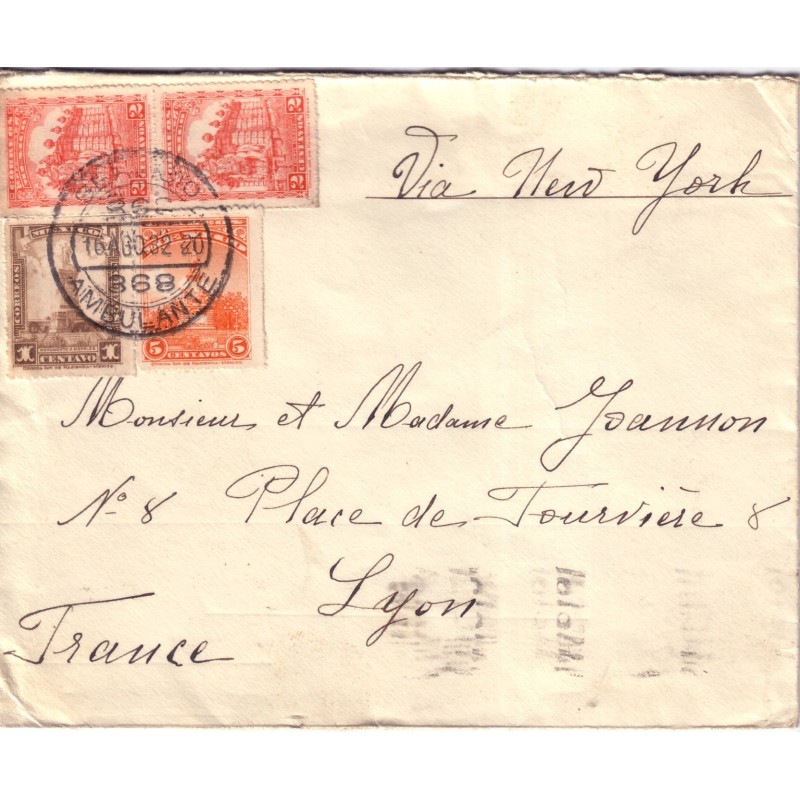 Via New York
2 2
CENTAVOS
16 AGO.32 20
868
AMBULANTE
CORREOS
1 CENTAVO 1
5 CENTAVOS 5
Monsieur et Madame Joannon
No. 8 Place de Fourvière 8
Lyon
France